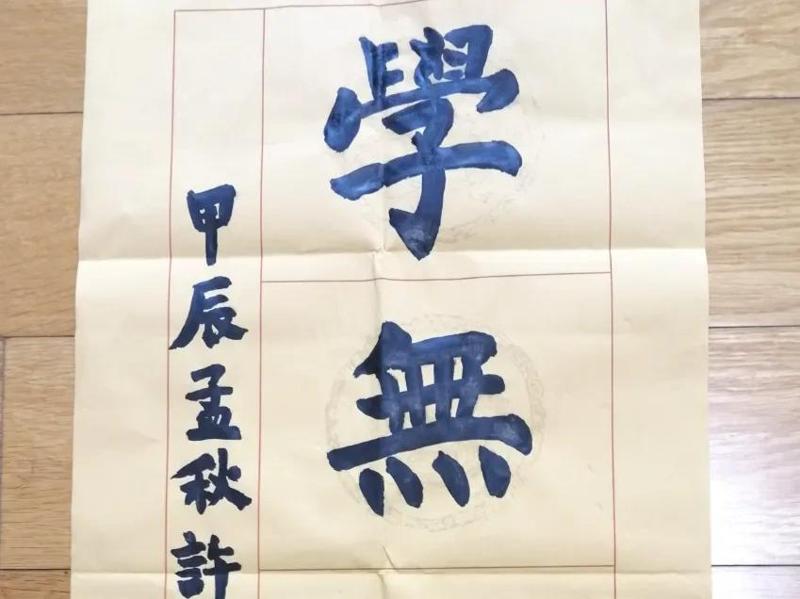 學無
甲辰孟秋許